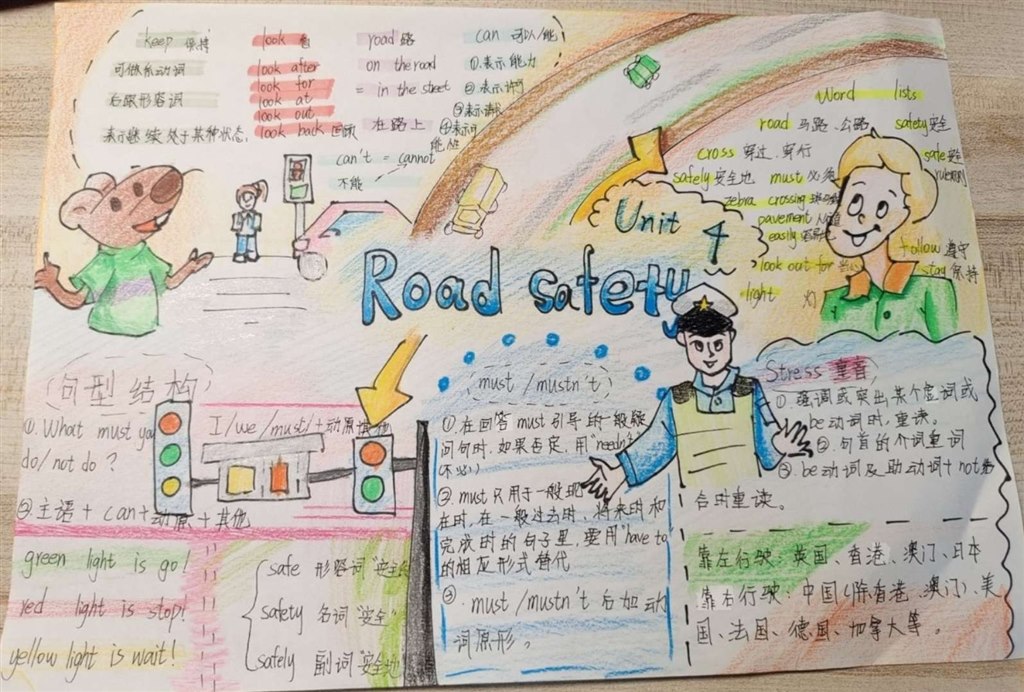 keep 保持
可做系动词
后跟形容词
表示继续处于某种状态.
look 看
look after
look for
look at
look out
look back 回顾
road 路
on the road
= in the street
在路上
can 可以/能
①.表示能力
②表示许可
③表示请求
can't = cannot
不能
Word lists
road 马路、公路 safety安全
cross 穿过、穿行
safe安全
safely 安全地 must 必须
zebra crossing
pavement
easily
look out for
follow 遵守
stay 保持
light 灯
Unit 4
Road safety
句型结构
①. What must you
do/not do?
I/we/must/+动原
②主语+can+动原+其他
green light is go!
red light is stop!
yellow light is wait!
safe 形容词"安全
safety 名词"安全"
safely 副词"安全地
must/mustn't
①.在回答must引导的一般疑
问句时,如果否定,用"needn't
②must只用于一般现
在时,在一般过去时、将来时和
完成时的句子里,要用"have to
的相应形式替代
③.must/mustn't后加动
词原形。
Stress 重音
①强调或突出某个虚词或
be动词时,重读。
②.句首的介词重词
③.be动词及助动词+not结
合时重读。
靠左行驶:英国、香港、澳门、日本
靠右行驶:中国(除香港、澳门)、美
国、法国、德国、加拿大等。